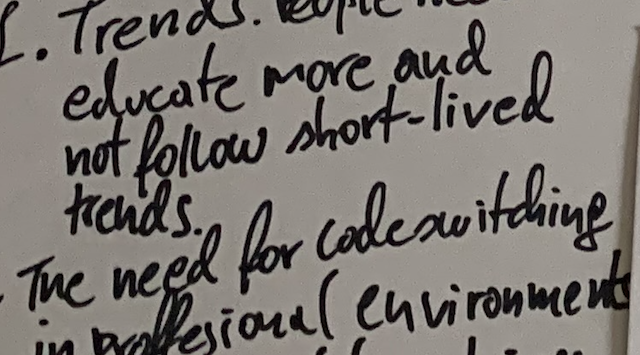 . Trends. People
educate more and
not follow short-lived
trends.
The need for codeswitching
in proffesional environments